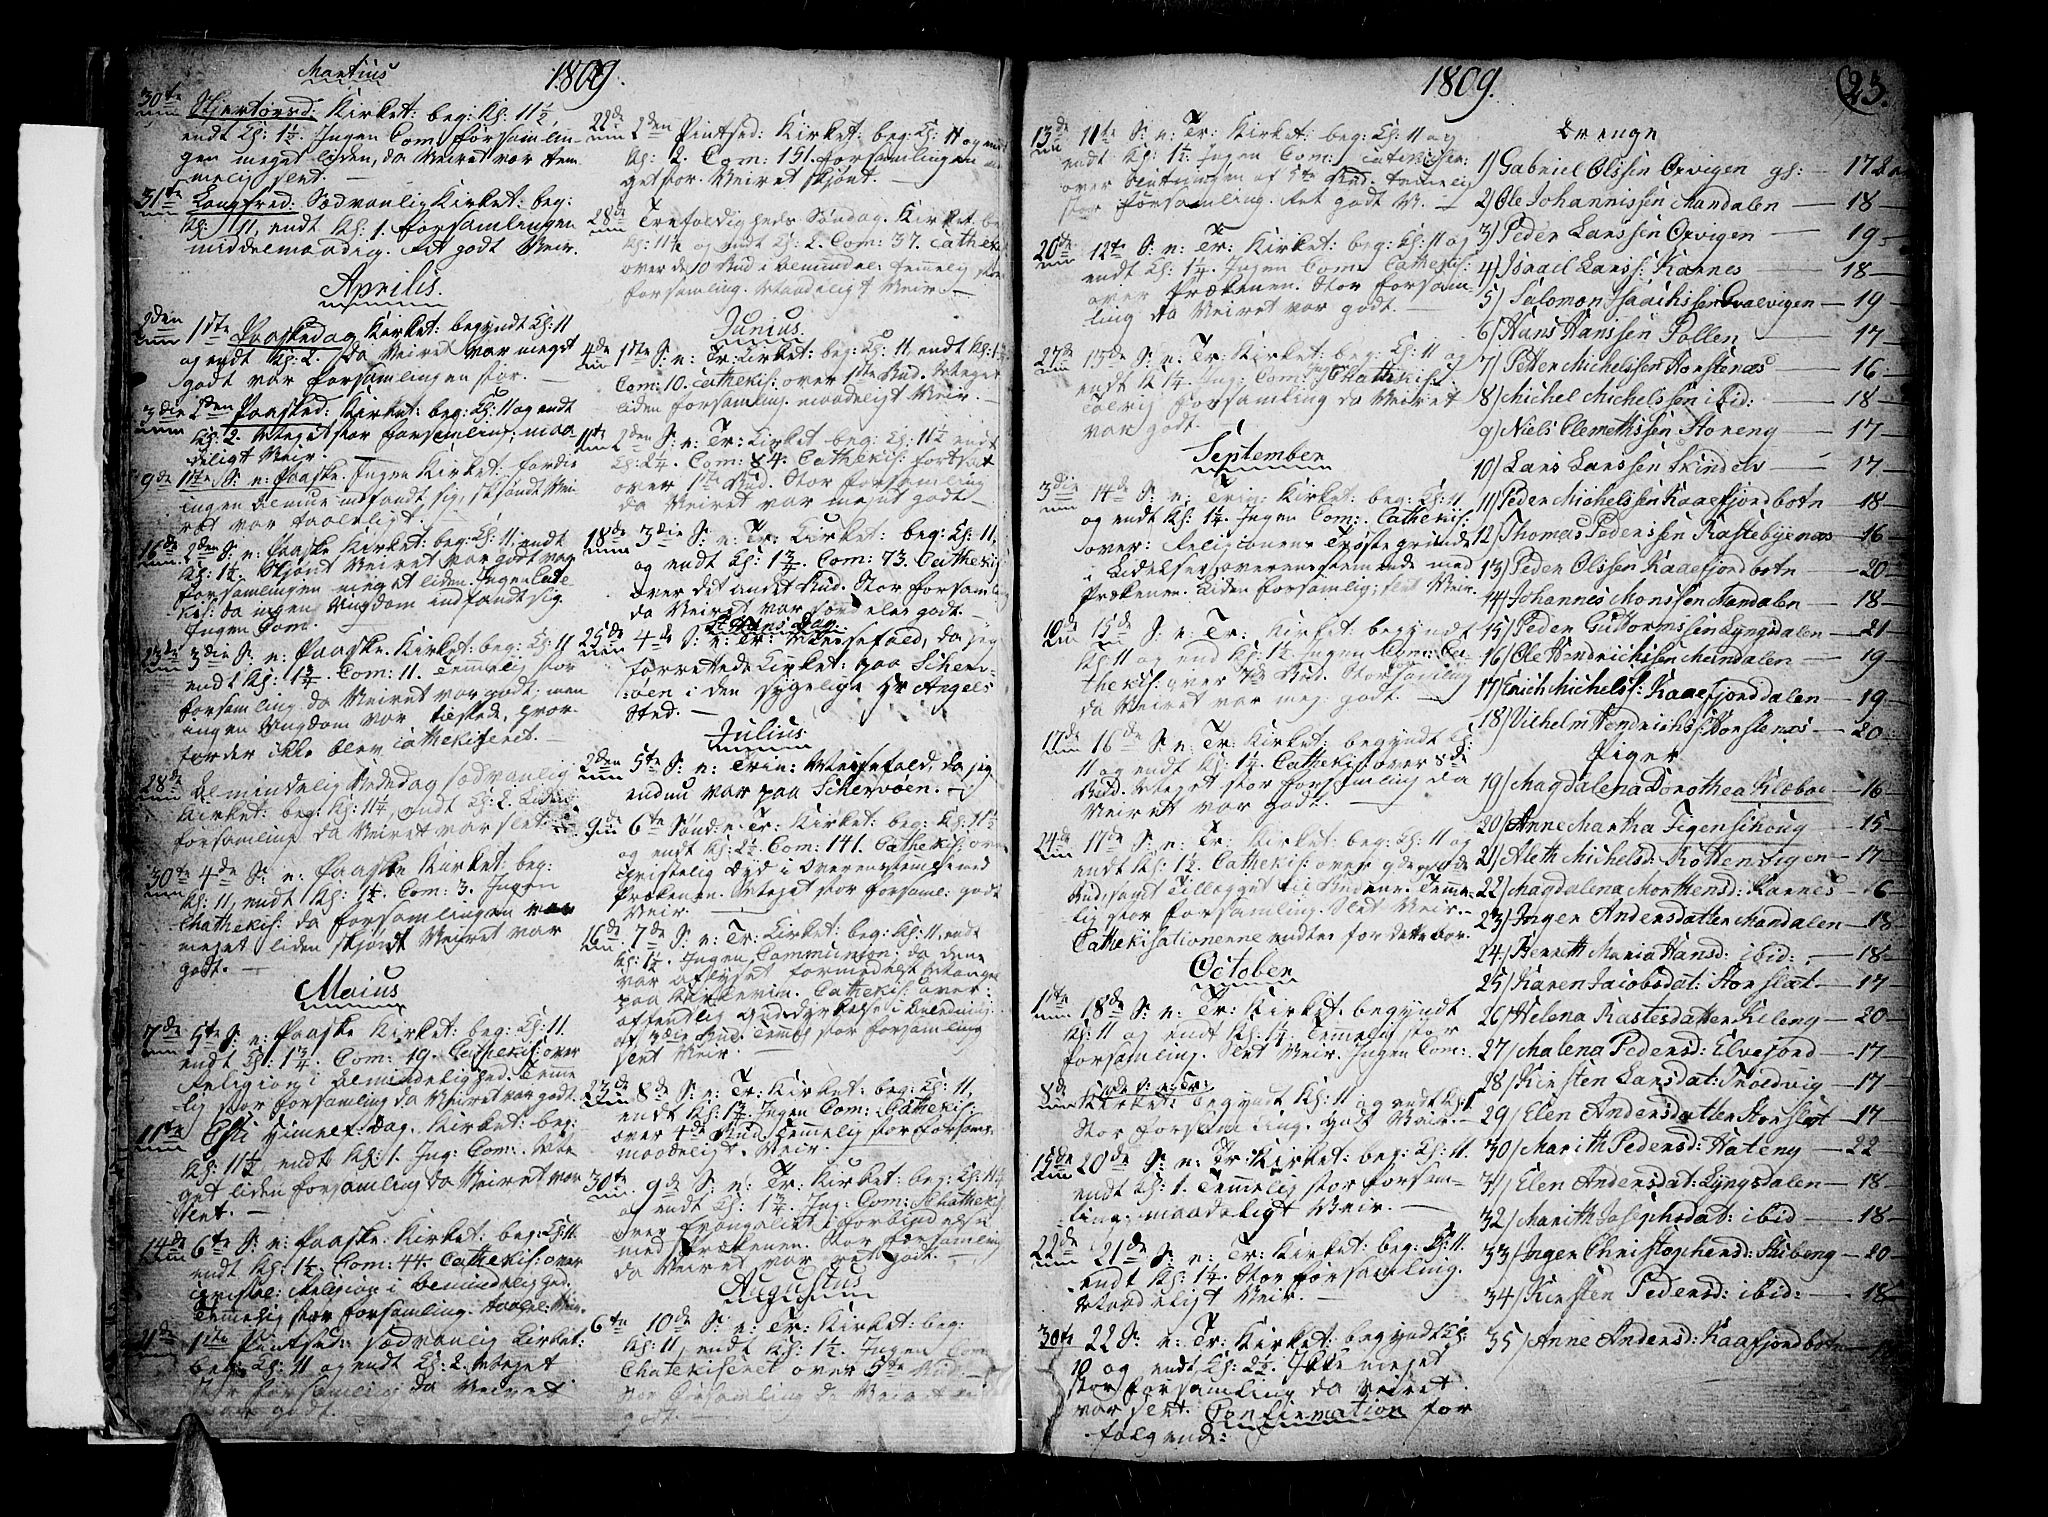 Martius
1809.
30te Skjertorsd: Kirket: beg: Kl: 11½,
endt Kl: 1½. Ingen Com: forsamlin-
gen meget liden, da Veiret var tem
melig slet. —
31te Langfred: Sædvanlig Kirket: beg:
Kl: 11, endt Kl: 1. forsamlingen
middelmaadig. Ret godt Veir.
Aprilis.
2den 1ste Paaskedag Kirket: begyndt Kl: 11
og endt Kl: 2. Da Veiret var meget
godt var forsamlingen stor. —
3die 2den Paasked: Kirket: beg: Kl: 11 og endt
Kl: 2. Meget stor forsamling; maa-
deligt Veir.
9de 1ste S: e: Paaske. Ingen Kirket: fordie
ingen Almue indfandt sig, skjøndt Vei
ret var taaleligt.
16de 2den S: e: Paaske Kirket: beg: Kl: 11, endt
Kl: 1½. Skjønt Veiret var godt var
forsamlingen meget liden. Ingen Cate
kis: da ingen Ungdom indfandt sig.
Ingen Com:
23de 3die S: e: Paaske. Kirket: beg: Kl: 11
endt Kl: 1¾. Com: 11. Temmelig stor
forsamling da Veiret var godt; men
ingen Ungdom var tilstede, hvor-
forder ikke blev Cathekiseret. —
28de Almindelig Bededag sædvanlig
Kirket: beg: Kl: 11¼ endt Kl: 2. Liden
forsamling da Veiret var slet.
30te 4de S: e: Paaske Kirket: beg:
Kl: 11, endt Kl: 1¼. Com: 3. Ingen
Chathekis: da forsamlingen var
meget liden skjønt Veiret var
godt. —
Maius
7de 5te S: e: Paaske Kirket: beg: Kl: 11.
endt Kl: 1¾. Com: 19. Cathekis: over
Religion i Almindelighed. Temme
lig stor forsamling da Veiret var godt.
11te Chri Himmelf: Dag. Kirket: beg:
Kl: 11½ endt Kl: 1. Ing: Com: Me
get liden forsamling da Veiret var
slet. —
14de 6te S: e: Paaske. Kirket: beg: Kl: 11.
endt Kl: 1½. Com: 44. Cathekis: over
christel: Religion i Almindelighed.
Temmelig stor forsamling. taalel: Veir.
21de 1ste Pintsed: sædvanlig Kirket:
beg: Kl: 11 og endt Kl: 2. Meget
stor forsamling da Veiret
var godt.
22de 2den Pintsed: Kirket: beg: Kl: 11 og endt
Kl: 2. Com: 151. forsamlingen me
get stor. Veiret skjønt. —
28de Trefoldigheds Søndag. Kirket: beg
Kl: 11½ og endt Kl: 2. Com: 37. Cathek:
over de 10 Bud i Almindel: temmelig stor
forsamling. Maadeligt Veir. —
Junius
4de 1ste S: e: Tr: Kirket: beg: Kl: 11, endt Kl: 1½
Com: 10. Cathekis: over 1ste Bud. Meget
liden forsamling. maadeligt Veir. —
11te 2den S: e: Tr: Kirket beg: Kl: 11½ endt
Kl: 2¼. Com: 84. Cathekis: fortsat
over 1ste Bud. Stor forsamling
da Veiret var meget godt —
18de 3die S: e: Tr: Kirket: beg: Kl: 11,
og endt Kl: 1¾. Com: 73. Cathekis:
over det andet Bud. Stor forsamling
da Veiret var særdeles godt. —
St: Hans Dag.
25de 4de S: e: Tr: Messefald, da jeg
forrettede Kirket: paa Scherv-
øen i den sygelige Hr Angels
Sted. —
Julius
2den 5te S: e: Trin: Messefald, da jeg
endnu var paa Schervøen. —
9de 6te Sønd: e: Tr: Kirket: beg: Kl: 11½
og endt Kl: 2½. Com: 141. Cathekis: over
christelig Dyd i Overensstemmelse med
Prækenen. Meget stor forsaml: godt
Veir. —
16de 7de S: e: Tr: Kirket: beg: Kl: 11, endt
Kl: 1½. Ingen Communion; da dene
var aflyset formedelst Mangel
paa Kirkeviin. Cathekis: over
offentlig Gudsdyrkelse i Anledning
af 3die Bud. Temel: stor forsamling
slet Veir.
23de 8de S: e: Tr: Kirket: beg: Kl: 11,
endt Kl: 1¾. Ingen Com: Cathekis:
over 4de Bud. Temmelig stor forsaml:
maadeligt. Veir. —
30te 9de S: e: Tr: Kirket: beg: Kl: 11¼
og endt Kl: 1¾. Ing: Com: Chathekis:
over Evangeliet i forbindelse
med Prækenen. Stor forsamling
da Veiret var ret godt. —
Augustus
6te 10de S: e: Tr: Kirket: beg:
Kl: 11, endt Kl: 1½. Ingen Com:
Chatekiseret over 5te Bud. —
Stor forsamling da Veiret var
godt. —
1809.
23.
13de 11te S: e: Tr: Kirket: beg: Kl: 11 og
endt Kl: 1½. Ingen Com: Catekiseret
over Slutningen af 5te Bud. temelig
stor forsamling. Ret godt V: —
20de 12te S: e: Tr: Kirket: beg: Kl: 11 og
endt Kl: 1¼. Ingen Com: Cathekis:
over Prækenen. Stor forsam-
ling da Veiret var godt. —
27de 13de S: e: Tr: Kirket: beg: Kl: 11 og
endt 1¼. Ing: Com: Ingen Chathekis:
Talrig forsamling da Veiret
var godt.
September
3die 14de S: e: Trin: Kirket: beg: Kl: 11
og endt Kl: 1¼. Ingen Com: Cathekis:
over: Religionens Trøstegrunde
i Lidelser, overensstemende med
Prækenen. Liden forsamling; slet Veir.
10de 15de S: e: Tr: Kirket: begyndt
Kl: 11 og end Kl: 1½ Ingen Com: Ca-
thekis: over 7de Bud. Stor samling
da Veiret var meg: godt. —
17de 16de S: e: Tr: Kirket: begyndt Kl:
11 og endt Kl: 1¼. Cathekis: over 8de
Bud. Meget stor forsamling da
Veiret var godt. —
24de 17de S: e: Tr: Kirket: beg: Kl: 11 og
endt Kl: 1½. Cathekis: over 9de og 10de
Bud samt Tillægget til Budene. Teme-
lig stor forsamling. Slet Veir. —
Cathekisationerne endtes for dette Aar.
October
1ste 18de S: e: Tr: Kirket: begyndt
Kl: 11 og endt Kl: 1¼. Temelig stor
forsamling. Slet Veir. Ingen Com:
8de 19de S: e: Tr:
Kirket: begyndt Kl: 11 og endt Kl: 1
Stor forsamling. godt Veir. —
15de 20de S: e: Tr: Kirket: beg: Kl: 11.
endt Kl: 1. Temelig stor forsam-
ling; maadeligt Veir. —
22de 21de S: e: Tr: Kirket: beg: Kl: 11.
endt Kl: 1¼. Stor forsamling.
Maadeligt Veir. —
30te 22 S: e: Tr: Kirket: begyndt Kl:
10 og endt Kl: 2½. Ikke meget
stor forsamling da Veiret
var slet. Confirmation for
følgende:
Drenge
1) Gabriel Olssen Oxvigen gl: — 17
2) Ole Johannissen Mandalen — 18 —
3) Peder Larssen Oxvigen — 19 —
4) Israel Larss: Karnes — 18 —
5) Salomon Isaachssen Qvalvigen — 19 —
6) Hans Hanssen Pollen — 17 —
7) Peder Michelssen Horsenæs — 16 —
8) Michel Michelssen ibid: — 18 —
9) Niels Clemethssen Storeng — 17 —
10) Lars Larssen Skindelv — 17 —
11) Peder Michelssen Kaaefjordbotn — 18 —
12) Thomas Pederssen Kastebyenæs — 16 —
13) Peder Olssen Kaaefjordbotn — 20 —
14) Johannes Monssen Mandalen — 18 —
15) Peder Guttormssen Lyngsdalen — 21 —
16) Ole Hendrichssen Mandalen — 19 —
17) Erich Michelss: Kaaefjorddalen — 19 —
18) Vilhelm Hendrichss: Horsenæs — 20.
Piger
19) Magdalena Dorothea Klæboe — 16 —
20) Anne Martha Figenschoug — 15 —
21) Aleth Michelsd: Rottenvigen — 17 —
22) Magdalena Morthensd: Karnes — 16 —
23) Inger Andersdatter Mandalen — 18 —
24) Berreth Maria Hansd: ibid: — 18 —
25) Karen Jacobsdat: Horslæt — 17 —
26) Helena Rastesdatter Kileng — 20 —
27) Malena Pedersd: Elvefjord — 17 —
28) Kirsten Larsdat: Troldvig — 17 —
29) Elen Andersdatter Horslæt — 17 —
30) Marith Pedersd: Hateng — 22 —
31) Elen Andersdat: Lyngsdalen — 18 —
32) Marith Josephsdat: ibid — 18 —
33) Inger Christophersd: Skibeng — 20 —
34) Kirsten Pedersd: ibid: — 18 —
35) Anne Andersd: Kaafjordbotn —